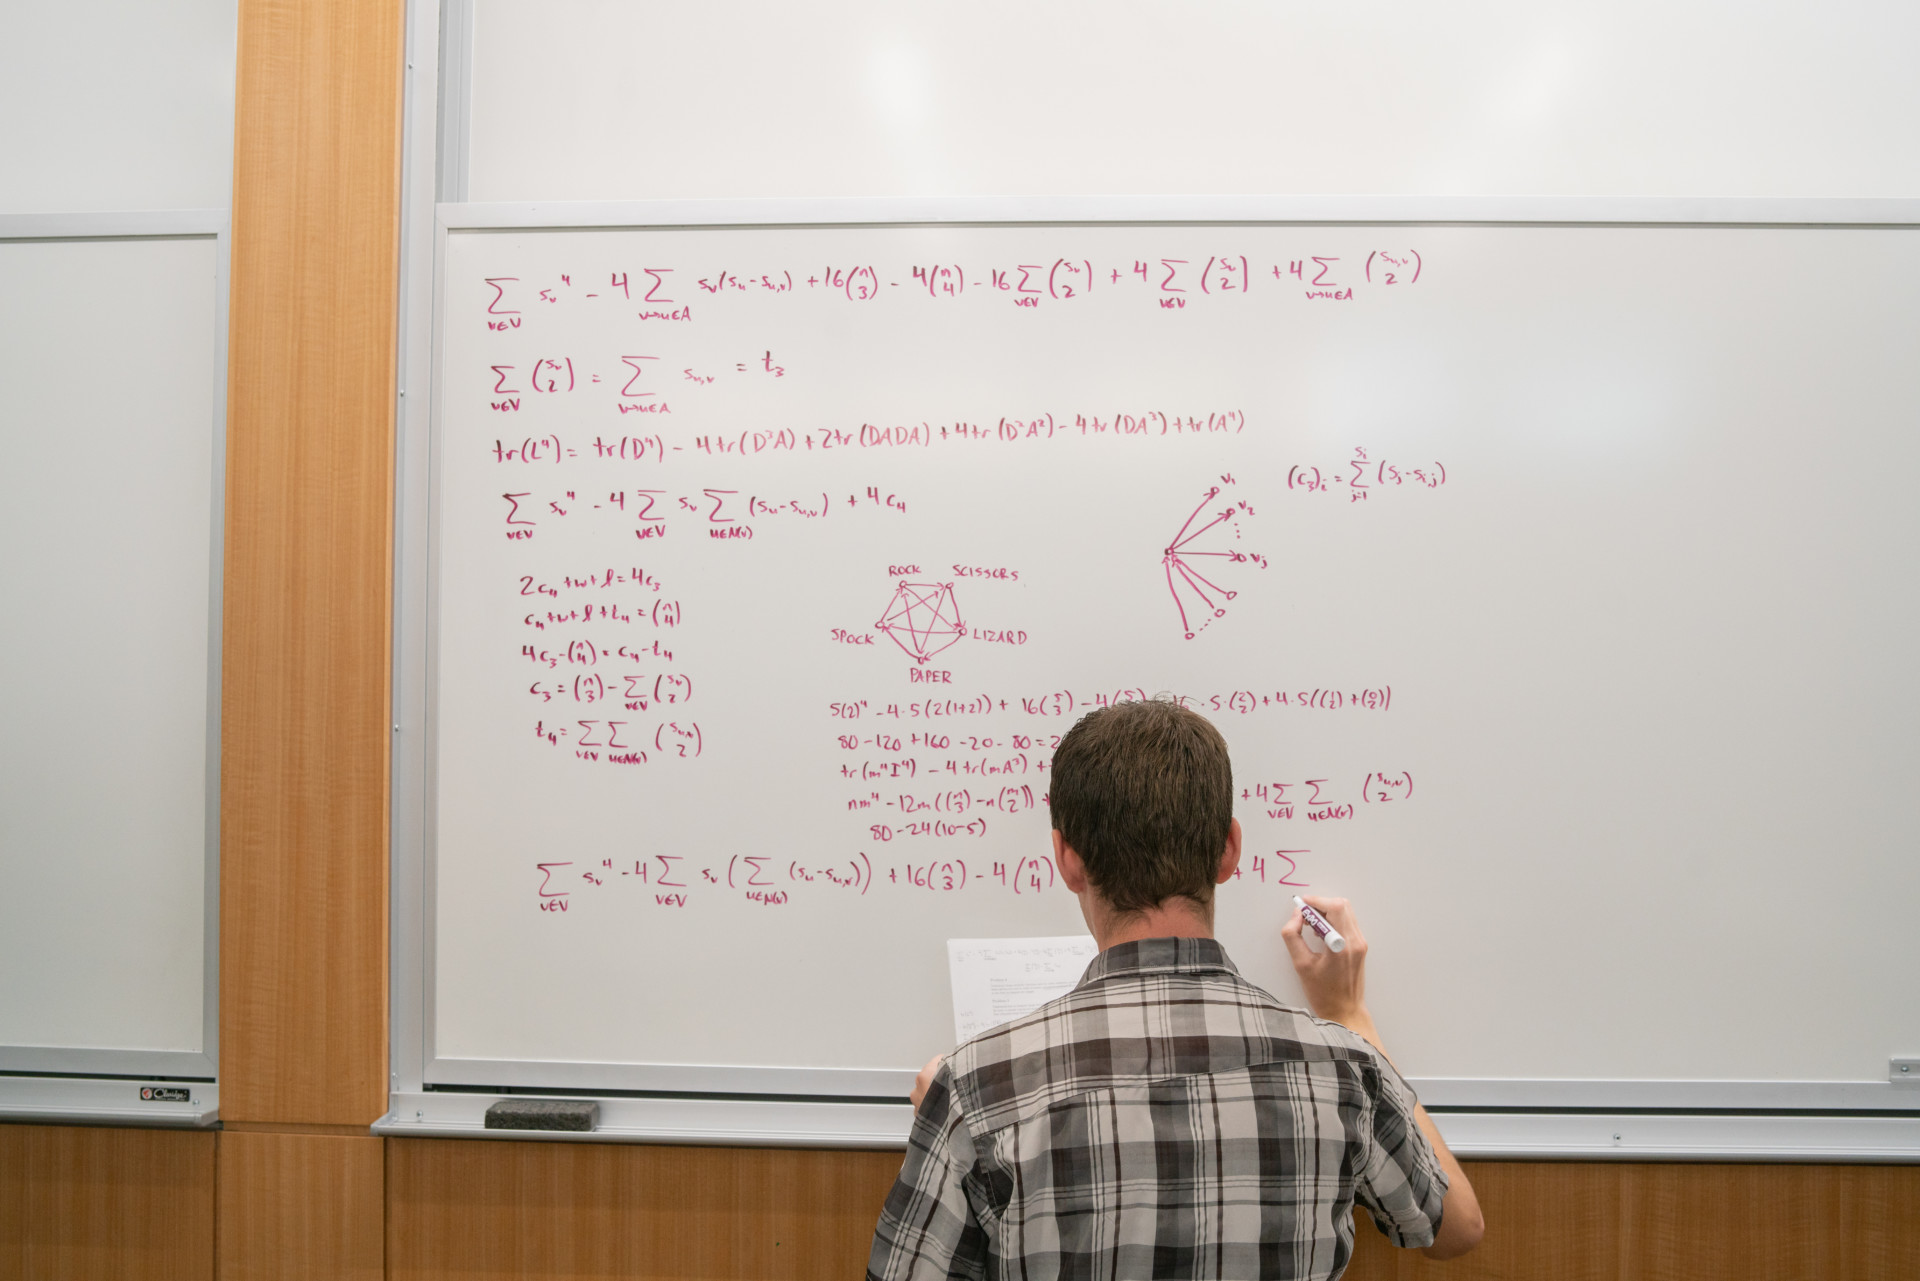 ∑_{v∈V} s_v⁴ − 4 ∑_{v→u∈A} s_v(s_u − s_{u,v}) + 16(n 3) − 4(n 4) − 16 ∑_{v∈V} (s_v 2) + 4 ∑_{v∈V} (s_v 2) + 4 ∑_{v→u∈A} (s_{u,v} 2)
∑_{v∈V} (s_v 2) = ∑_{v→u∈A} s_{u,v} = t₃
tr(L⁴) = tr(D⁴) − 4tr(D³A) + 2tr(DADA) + 4tr(D²A²) − 4tr(DA³) + tr(A⁴)
(c₃)_i = ∑_{j=1}^{s_i} (s_j − s_{i,j})
∑_{v∈V} s_v⁴ − 4 ∑_{v∈V} s_v ∑_{u∈N(v)} (s_u − s_{u,v}) + 4c₄
v₁
v₂
v_j
2c₄ + w + l = 4c₃
c₄ + w + l + t₄ = (n 4)
4c₃ − (n 4) = c₄ − t₄
c₃ = (n 3) − ∑_{v∈V} (s_v 2)
t₄ = ∑_{v∈V} ∑_{u∈N(v)} (s_{u,v} 2)
ROCK SCISSORS
SPOCK LIZARD
PAPER
5(2)⁴ − 4·5(2(1+2)) + 16(5 3) − 4(5 · 5·(2 2) + 4·5((1 2) + (0 2))
80 − 120 + 160 − 20 − 80 = 2
tr(m⁴I⁴) − 4tr(mA³) +
nm⁴ − 12m((n 3) − n(m 2)) + + 4 ∑_{v∈V} ∑_{u∈N(v)} (s_{u,v} 2)
80 − 24(10−5)
∑_{v∈V} s_v⁴ − 4 ∑_{v∈V} s_v (∑_{u∈N(v)} (s_u − s_{u,v})) + 16(n 3) − 4(n 4) + 4 ∑
EXPO